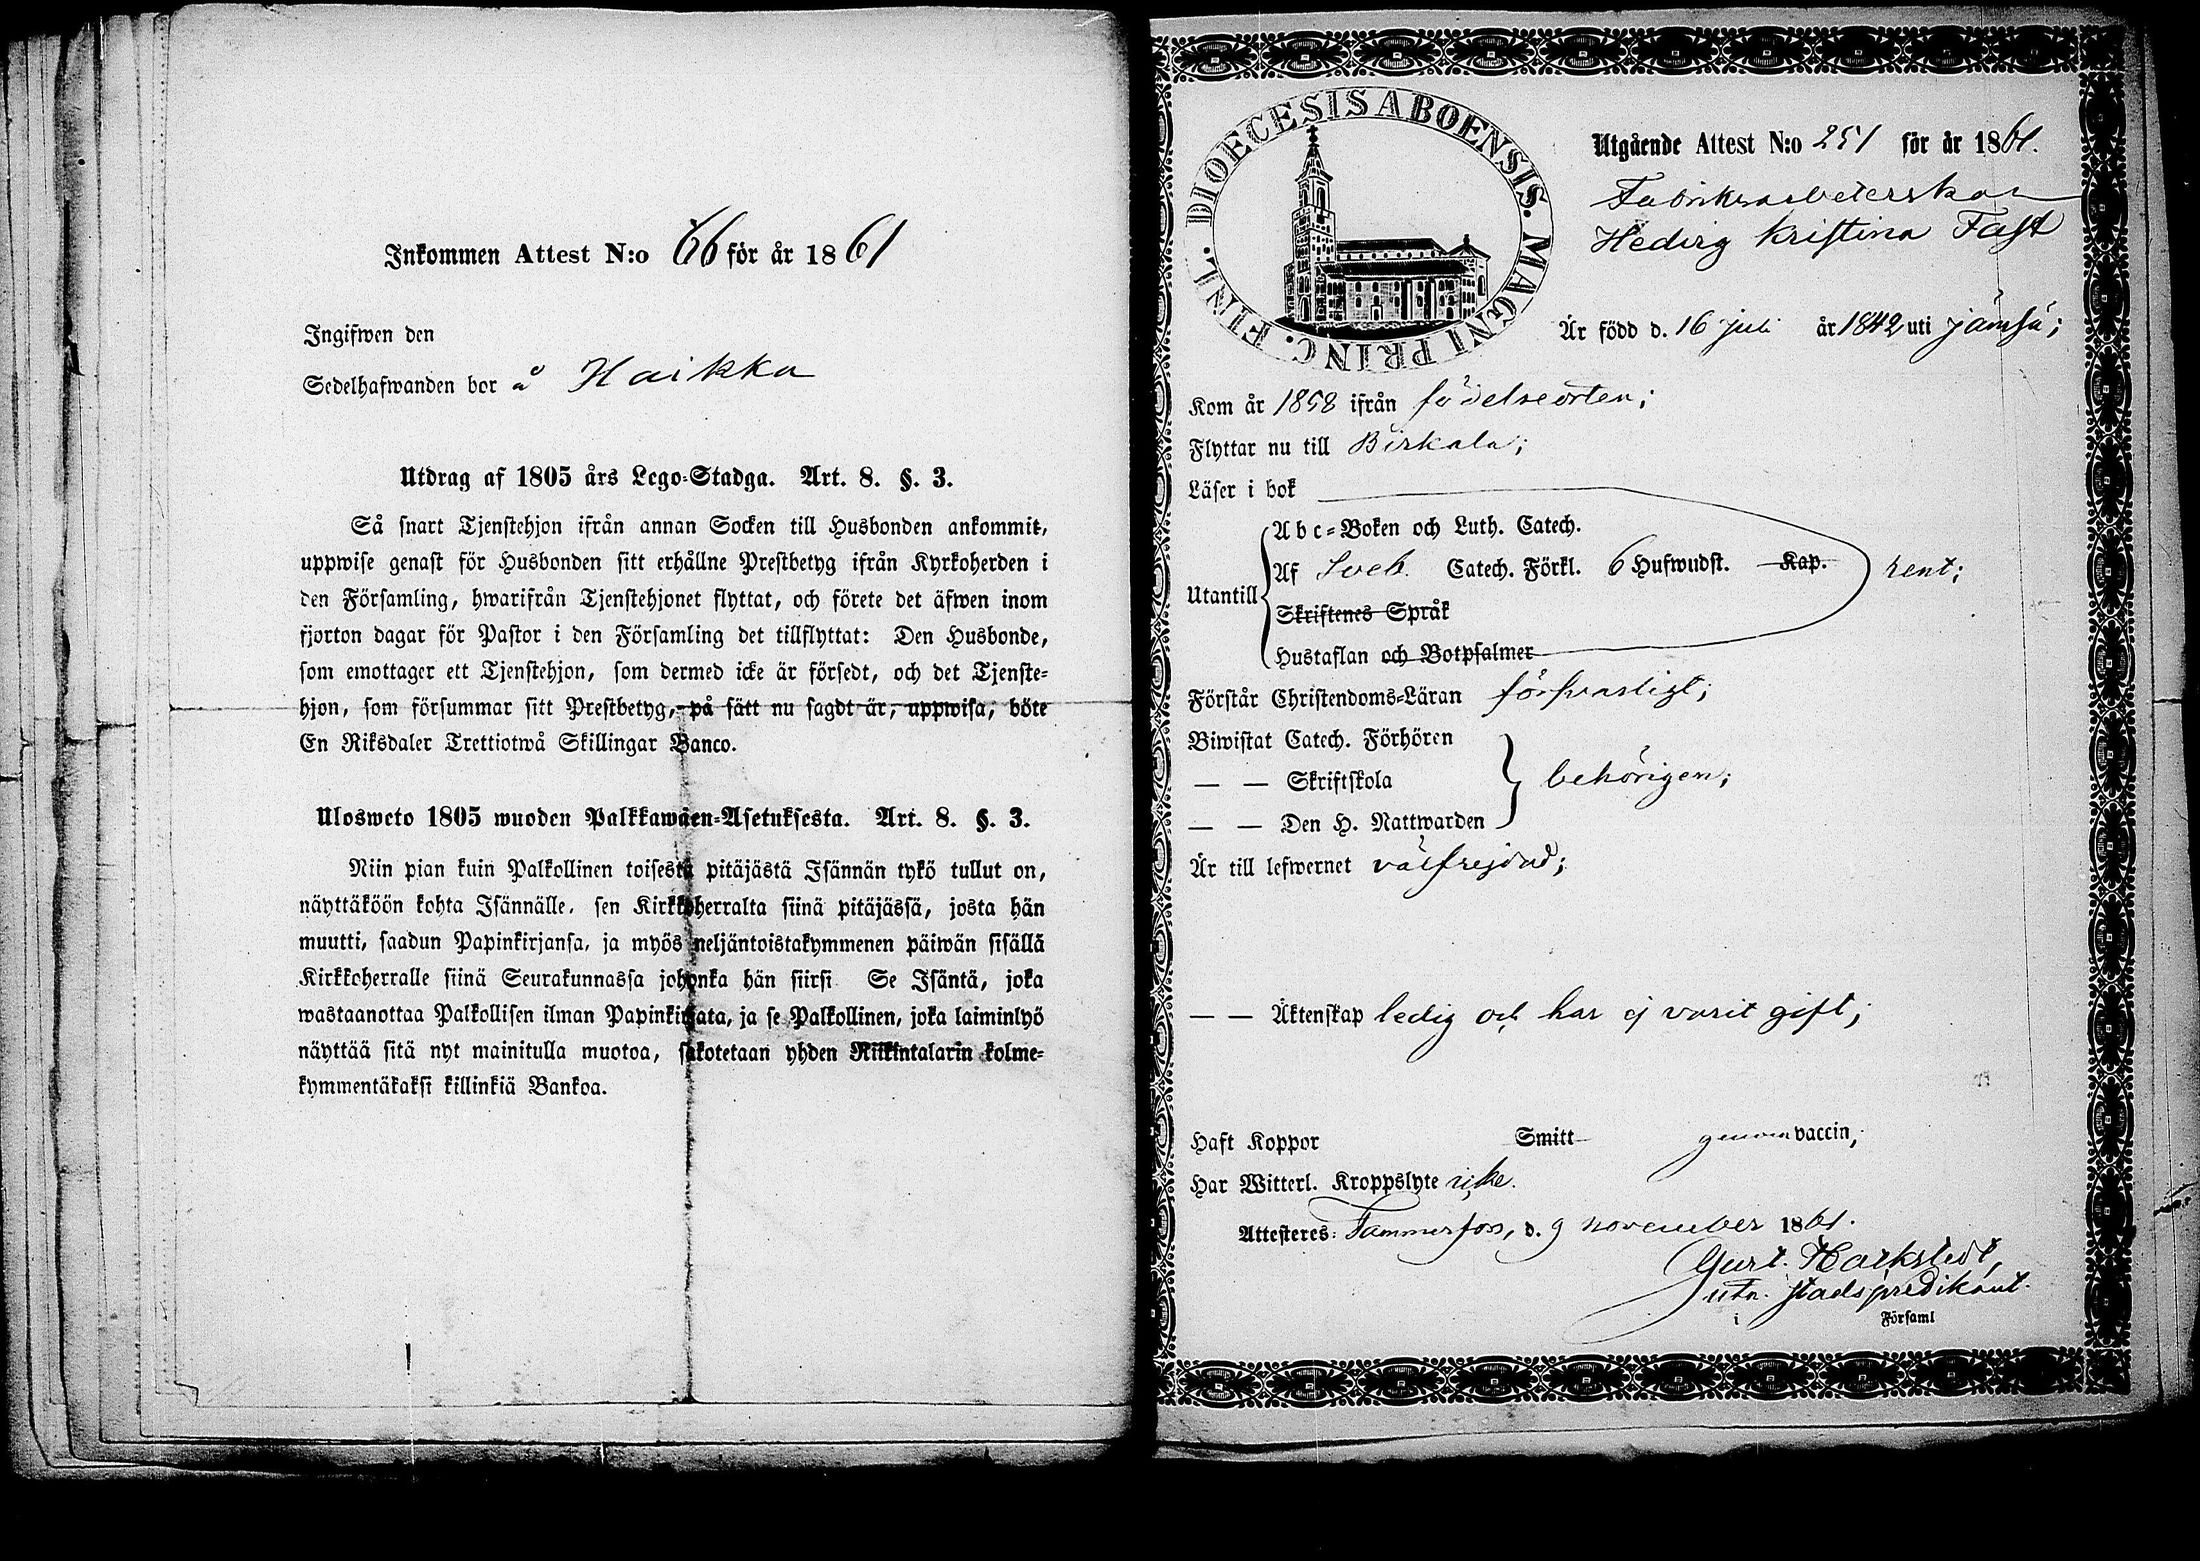 Inkommen Attest N:o 66 för år 1861
Ingifwen den
Sedelhafwanden bor å Haikka
Utdrag af 1805 års Lego-Stadga. Art. 8. §. 3.
Så snart Tjenstehjon ifrån annan Socken till Husbonden ankommit,
uppwise genast för Husbonden sitt erhållne Prestbetyg ifrån Kyrkoherden i
den Församling, hwarifrån Tjenstehjonet flyttat, och förete det äfwen inom
fjorton dagar för Pastor i den Församling det tillflyttat: Den Husbonde,
som emottager ett Tjenstehjon, som dermed icke är försedt, och det Tjenste-
hjon, som försummar sitt Prestbetyg, på sätt nu sagdt är, uppwisa, böte
En Riksdaler Trettiotwå Skillingar Banco.
Ulosweto 1805 wuoden Palkkawäen-Asetuksesta. Art. 8. §. 3.
Niin pian kuin Palkollinen toisesta pitäjästä Isännän tykö tullut on,
näyttäköön kohta Isännälle, sen Kirkkoherralta siinä pitäjässä, josta hän
muutti, saadun Papinkirjansa, ja myös neljäntoistakymmenen päiwän sisällä
Kirkkoherralle siinä Seurakunnassa johonka hän siirsi Se Isäntä, joka
wastaanottaa Palkollisen ilman Papinkirjata, ja se Palkollinen, joka laiminlyö
näyttää sitä nyt mainitulla muotoa, sakotetaan yhden Riikintalarin kolme-
kymmentäkaksi killinkiä Bankoa.
DIOECESIS ABOENSIS. MAGNI PRINC. FINL.
Utgående Attest N:o 251 för år 1861.
Fabriksarbeterskan
Hedvig Kristina Fast
Är född d. 16 juli år 1842 uti Jämsä;
Kom år 1858 ifrån födelseorten;
Flyttar nu till Birkala;
Läser i bok
Abc-Boken och Luth. Catech.
Utantill Af Sveb. Catech. Förkl. 6 Hufwudst. Kap. rent;
Skriftenes Språk
Hustaflan och Botpsalmer
Förstår Christendoms-Läran försvarligt;
Biwistat Catech. Förhören
— — Skriftskola behörigen;
— — Den H. Nattwarden
Är till lefwernet välfrejdad;
— — Äktenskap ledig och har ej varit gift;
Haft Koppor Smitt genom vaccin;
Har Witterl. Kroppslyte icke.
Attesteres: Tammerfors, d. 9 november 1861.
Gust. Harkstedt,
utn. stadspredikant.
i Församl